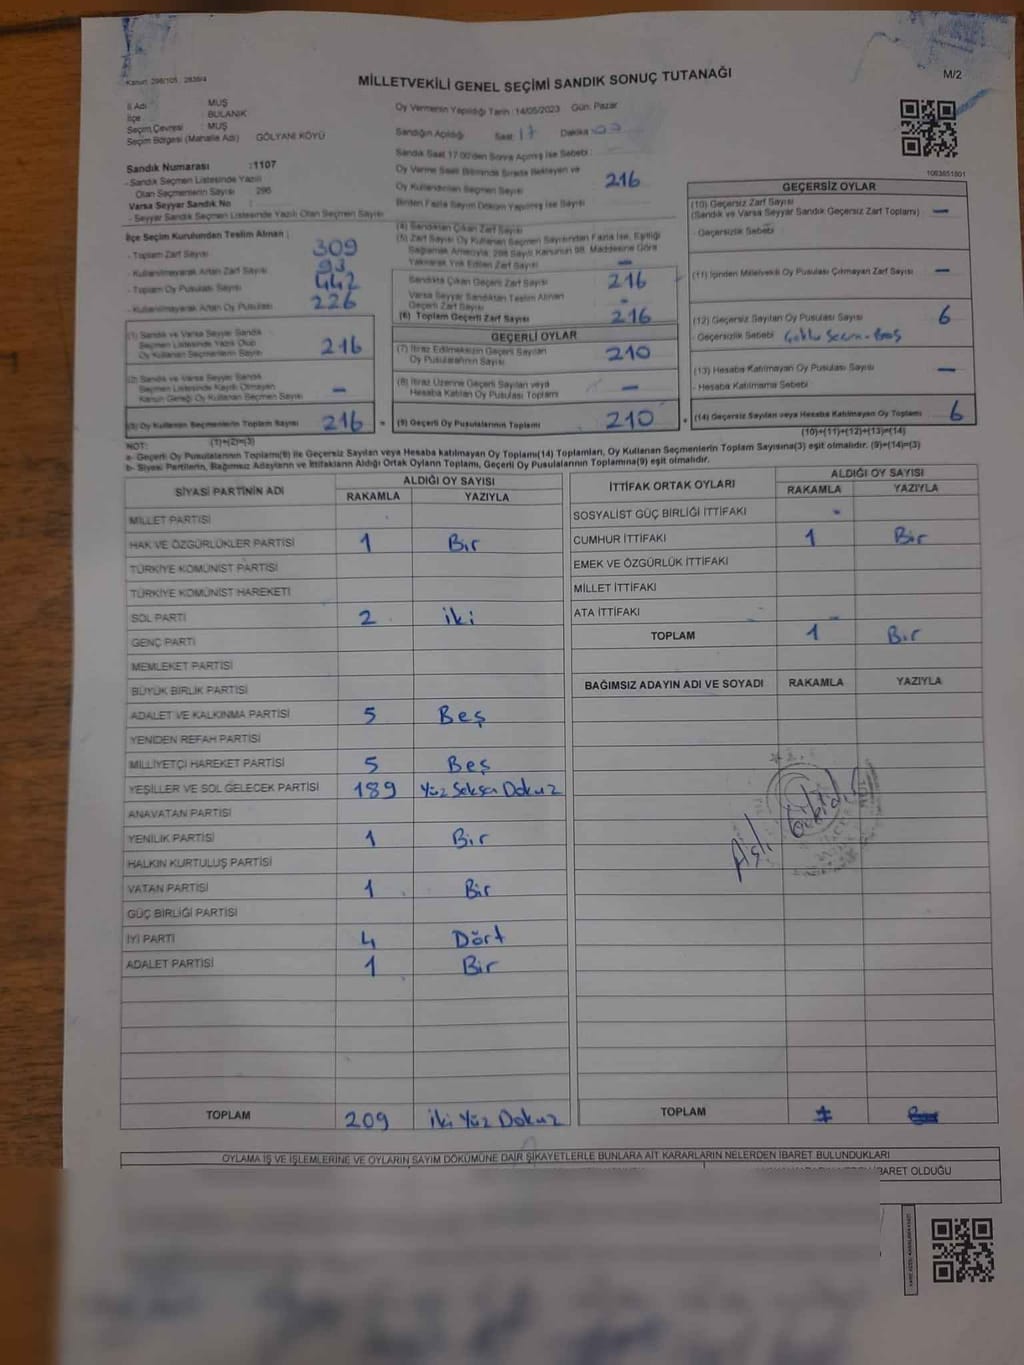 Kanun: 298/105 : 2839/4
MİLLETVEKİLİ GENEL SEÇİMİ SANDIK SONUÇ TUTANAĞI
M/2
İl Adı : MUŞ
İlçe : BULANIK
Seçim Çevresi : MUŞ
Seçim Bölgesi (Mahalle Adı) GÖLYANI KÖYÜ
Oy Vermenin Yapıldığı Tarih : 14/05/2023 Gün: Pazar
Sandığın Açıldığı Saat 17 Dakika
Sandık Saat 17.00'den Sonra Açılmış İse Sebebi :
Oy Verme Saati Bitiminde Sırada Bekleyen ve
Oy Kullandırılan Seçmen Sayısı 216
Birden Fazla Sayım Döküm Yapılmış İse Sayısı
Sandık Numarası :1107
- Sandık Seçmen Listesinde Yazılı
Olan Seçmenlerin Sayısı 296
Varsa Seyyar Sandık No :
- Seyyar Sandık Seçmen Listesinde Yazılı Olan Seçmen Sayısı
İlçe Seçim Kurulundan Teslim Alınan :
- Toplam Zarf Sayısı 309
- Kullanılmayarak Artan Zarf Sayısı 93
- Toplam Oy Pusulası Sayısı 442
- Kullanılmayarak Artan Oy Pusulası 226
(1) Sandık ve Varsa Seyyar Sandık
Seçmen Listesinde Yazılı Olup
Oy Kullanan Seçmenlerin Sayısı 216
(2) Sandık ve Varsa Seyyar Sandık
Seçmen Listesinde Kayıtlı Olmayan
Kanun Gereği Oy Kullanan Seçmen Sayısı –
(3) Oy Kullanan Seçmenlerin Toplam Sayısı 216 =
(1)+(2)=(3)
(4) Sandıktan Çıkan Zarf Sayısı
(5) Zarf Sayısı Oy Kullanan Seçmen Sayısından Fazla İse, Eşitliği
Sağlamak Amacıyla; 298 Sayılı Kanunun 98. Maddesine Göre
Yakılarak Yok Edilen Zarf Sayısı –
Sandıkta Çıkan Geçerli Zarf Sayısı 216
Varsa Seyyar Sandıktan Teslim Alınan
Geçerli Zarf Sayısı -
(6) Toplam Geçerli Zarf Sayısı 216
GEÇERLİ OYLAR
(7) İtiraz Edilmeksizin Geçerli Sayılan
Oy Pusulalarının Sayısı 210
(8) İtiraz Üzerine Geçerli Sayılan veya
Hesaba Katılan Oy Pusulası Toplamı –
(9) Geçerli Oy Pusulalarının Toplamı 210 +
1063851801
GEÇERSİZ OYLAR
(10) Geçersiz Zarf Sayısı
(Sandık ve Varsa Seyyar Sandık Geçersiz Zarf Toplamı) –
- Geçersizlik Sebebi
(11) İçinden Milletvekili Oy Pusulası Çıkmayan Zarf Sayısı –
(12) Geçersiz Sayılan Oy Pusulası Sayısı 6
- Geçersizlik Sebebi Çoklu Seçim - Boş
(13) Hesaba Katılmayan Oy Pusulası Sayısı –
- Hesaba Katılmama Sebebi
(14) Geçersiz Sayılan veya Hesaba Katılmayan Oy Toplamı 6
(10)+(11)+(12)+(13)=(14)
NOT:
a- Geçerli Oy Pusulalarının Toplamı(9) ile Geçersiz Sayılan veya Hesaba katılmayan Oy Toplamı(14) Toplamları, Oy Kullanan Seçmenlerin Toplam Sayısına(3) eşit olmalıdır. (9)+(14)=(3)
b- Siyasi Partilerin, Bağımsız Adayların ve İttifakların Aldığı Ortak Oyların Toplamı, Geçerli Oy Pusulalarının Toplamına(9) eşit olmalıdır.
SİYASİ PARTİNİN ADI ALDIĞI OY SAYISI
RAKAMLA YAZIYLA
MİLLET PARTİSİ
HAK VE ÖZGÜRLÜKLER PARTİSİ 1 Bir
TÜRKİYE KOMÜNİST PARTİSİ
TÜRKİYE KOMÜNİST HAREKETİ
SOL PARTİ 2 iki
GENÇ PARTİ
MEMLEKET PARTİSİ
BÜYÜK BİRLİK PARTİSİ
ADALET VE KALKINMA PARTİSİ 5 Beş
YENİDEN REFAH PARTİSİ
MİLLİYETÇİ HAREKET PARTİSİ 5 Beş
YEŞİLLER VE SOL GELECEK PARTİSİ 189 Yüz Seksen Dokuz
ANAVATAN PARTİSİ
YENİLİK PARTİSİ 1 Bir
HALKIN KURTULUŞ PARTİSİ
VATAN PARTİSİ 1 Bir
GÜÇ BİRLİĞİ PARTİSİ
İYİ PARTİ 4 Dört
ADALET PARTİSİ 1 Bir
TOPLAM 209 iki Yüz Dokuz
İTTİFAK ORTAK OYLARI ALDIĞI OY SAYISI
RAKAMLA YAZIYLA
SOSYALİST GÜÇ BİRLİĞİ İTTİFAKI -
CUMHUR İTTİFAKI 1 Bir
EMEK VE ÖZGÜRLÜK İTTİFAKI
MİLLET İTTİFAKI
ATA İTTİFAKI
TOPLAM 1 Bir
BAĞIMSIZ ADAYIN ADI VE SOYADI RAKAMLA YAZIYLA
Aslı Gibidir
TOPLAM
OYLAMA İŞ VE İŞLEMLERİNE VE OYLARIN SAYIM DÖKÜMÜNE DAİR ŞİKAYETLERLE BUNLARA AİT KARARLARIN NELERDEN İBARET BULUNDUKLARI
İBARET OLDUĞU